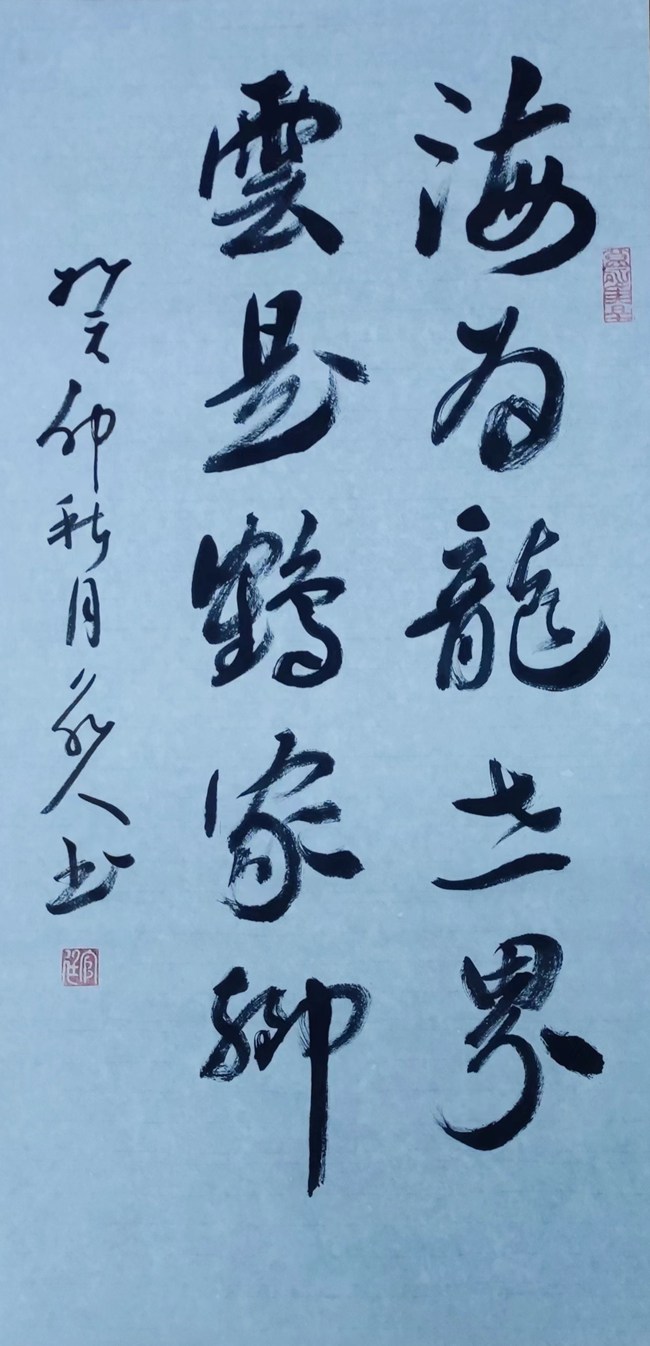 海为龍世界
雲是鶴家鄉
癸卯秋月
人书